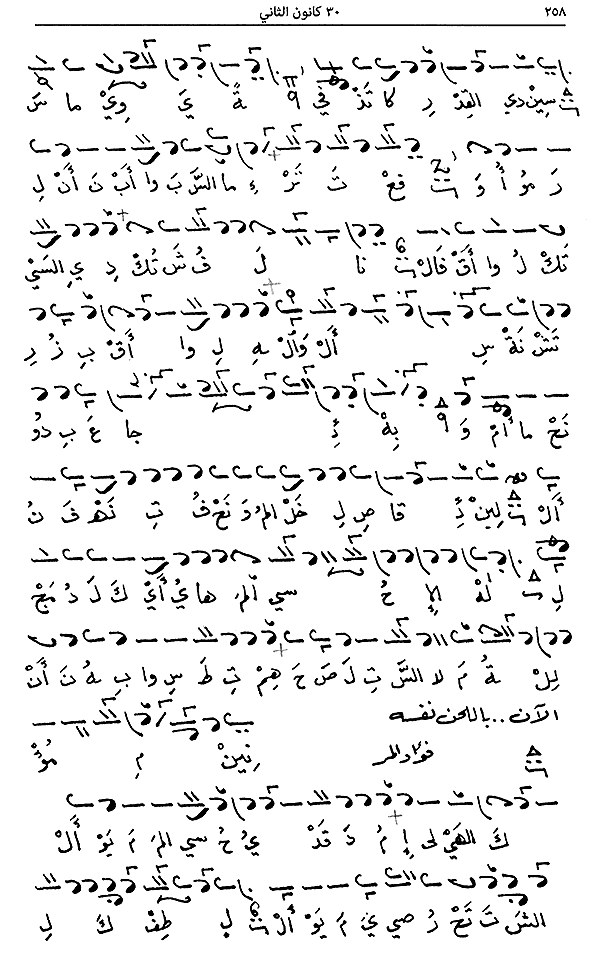 ٢٥٨ ٣٠ كانون الثاني
سِينْ دي القِدْ رِ كا تَذْ في ةً يَ وِيْ ما سَ
رَ مُؤْ أَ وَ فعْ تَ تَرْ ءِ ما السَّ بَ وا أَبْ نَ أَنْ لِ
تَكْ لُ وا أَقْ فَالْ نا لَ فُ شَ تُكْ دِ يِ السَيْ
تَشْ نَةْ سِ أَلْ وَالْ بهِ لِ وا أَقْ بِ زُ رِ
نَحْ ما أُمْ وَ بِهْ ذِ جا عَ بِ دُو
أَلْ لِينْ ذِ قا صِ لِ خَلْ المُ دَ نَعْ فُ تِ نَهْ فَ نُ
لِ لهْ الإِ حُ سي المَ ها يُ أَيْ كَ لَ دُ مَجْ
لِلْ ةُ مَ لا السَّ تِ لَ صَ حَ هِمْ تِ طَ سِ وا بِ هُ نَ أَنْ
الآن .. باللحن نفسه
فؤاد المر نِينْ مِ مُؤْ
كَ الهَيْ لى إِ مُ دَ قَدْ يُ حُ سي المَ مَ يَوْ أَلْ
الشَ تَ تَحْ رُ صي يَ مَ يَوْ أَلْ لِ طِفْ كَ لِ